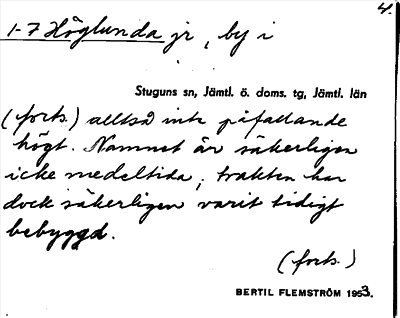 4.
1-7 Höglunda jr, by i
Stuguns sn, Jämtl. ö. doms. tg, Jämtl. län
(forts.) alltså inte påfallande
högt. Namnet är säkerligen
icke medeltida; trakten har
dock säkerligen varit tidigt
bebyggd.
(forts.)
BERTIL FLEMSTRÖM 1953.